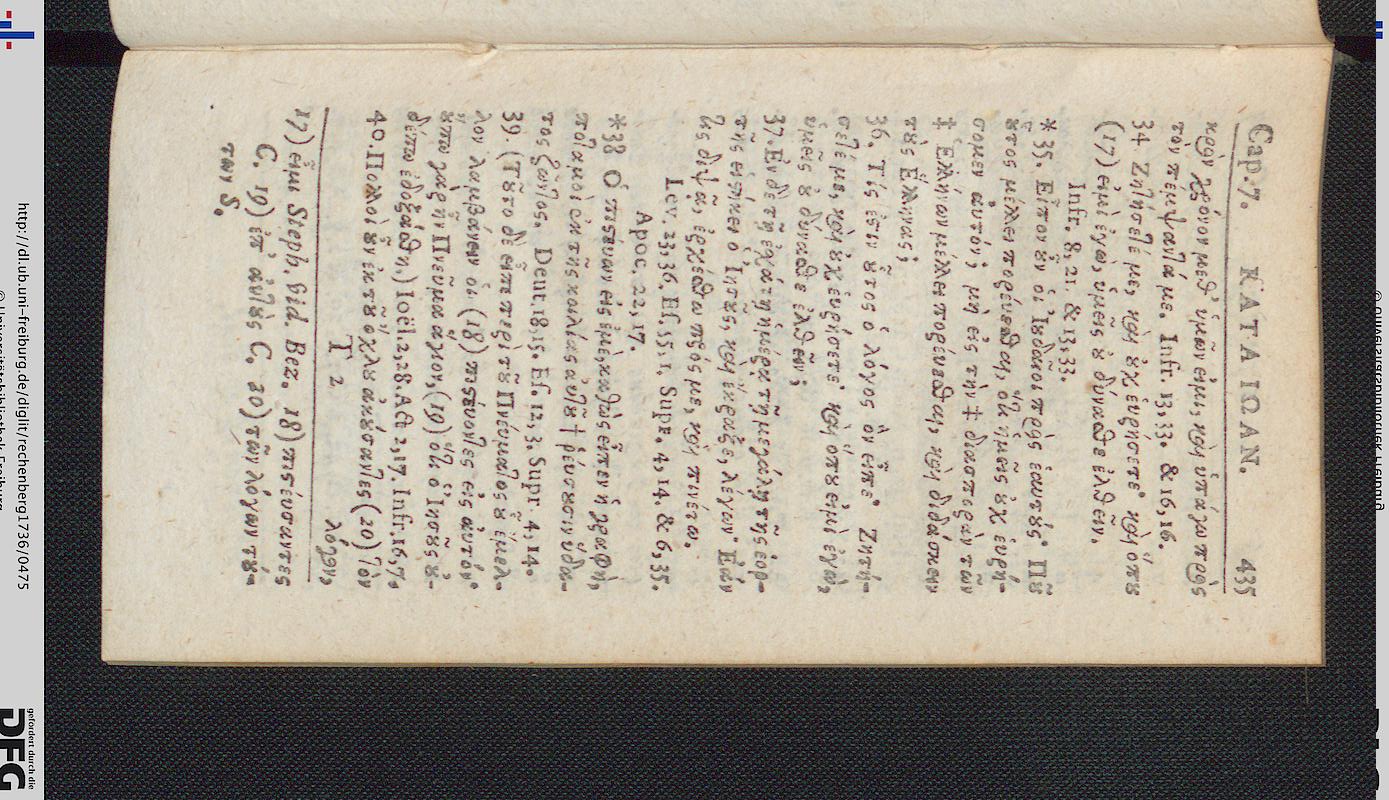 Cap. 7. ΚΑΤΑ ΙΩΑΝ. 435
κρὸν χρόνον μεθ' ὑμῶν εἰμι, καὶ ὑπάγω πρὸς
τὸν πέμψαντά με. Infr. 13, 33. & 16, 16.
34 Ζητήσετέ με, καὶ ȣ̓χ εὑρήσετε· καὶ ὅπȣ
(17) εἰμὶ ἐγὼ, ὑμεῖς ȣ̓ δύναϑε ἐλθεῖν.
Infr. 8, 21. & 13, 33.
* 35. Εἶπον ȣ̓͂ν οἱ Ἰȣδαῖοι πρὸς ἑαυτȣ́ς· Πȣ͂
ȣ̓͂τος μέλλει πορεύεϑαι, ὅτι ἡμεῖς ȣ̓χ εὑρή-
σομεν ἀυτόν; μὴ εἰς τὴν ‡ διασπορὰν τῶν
‡ Ἑλλήνων μέλλει πορεύεϑαι, καὶ διδάσκειν
τȣ̀ς Ἕλληνας;
36. Τίς ἐστιν ȣ̓͂τος ὁ λόγος ὃν εἶπε· Ζητή-
σετέ με, καὶ ȣ̓χ εὑρήσετε· καὶ ὅπȣ εἰμὶ ἐγὼ,
ὑμεῖς ȣ̓ δύναϑε ἐλθεῖν;
37. Ἐν δὲ τῇ ἐχάτῃ ἡμέρᾳ τῇ μεγάλῃ τῆς ἑορ-
τῆς εἱστήκει ὁ Ἰησȣ͂ς, καὶ ἔκραξε, λέγων· Ἐάν
τις διψᾷ, ἐρχέϑω πρός με, καὶ πινέτω.
Lev. 23, 36. Ef. 55, 1. Supr. 4, 14. & 6, 35.
Apoc. 22, 17.
* 38 Ὁ πιστεύων εἰς ἐμὲ, καθὼς εἶπεν ἡ γραφὴ,
ποταμοὶ ἐκ τῆς κοιλίας ἀυτȣ͂ † ῥεύσȣσιν ὕδα-
τος ζῶντος. Deut. 18, 15. Ef. 12, 3. Supr. 4, 14.
39 (Τȣ͂το δὲ εἶπε περὶ τȣ͂ Πνεύματος ȣ̓͂ ἔμελ-
λον λαμβάνειν οἱ (18) πιστεύοντες εἰς ἀυτόν·
ȣ̓́πω γὰρ ἦν Πνεῦμα ἅγιον, (19) ὅτι ὁ Ἰησȣ͂ς ȣ̓-
δέπω ἐδοξάϑη.) Joël. 2, 28. Act. 2, 17. Infr. 16, 7.
40. Πολλοὶ ȣ̓͂ν ἐκ τȣ͂ ὄχλȣ ἀκȣ́σαντες (20) τὸν
T 2 λόγον,
17) εἶμι Steph. vid. Bez. 18) πιστεύσαντες
C. 19) ἐπ' ἀυτȣ̀ς C. 20) τῶν λόγων τȣ́-
των S.
http://dl.ub.uni-freiburg.de/diglit/rechenberg1736/0475
© Universitätsbibliothek Freiburg
gefördert durch die
DFG